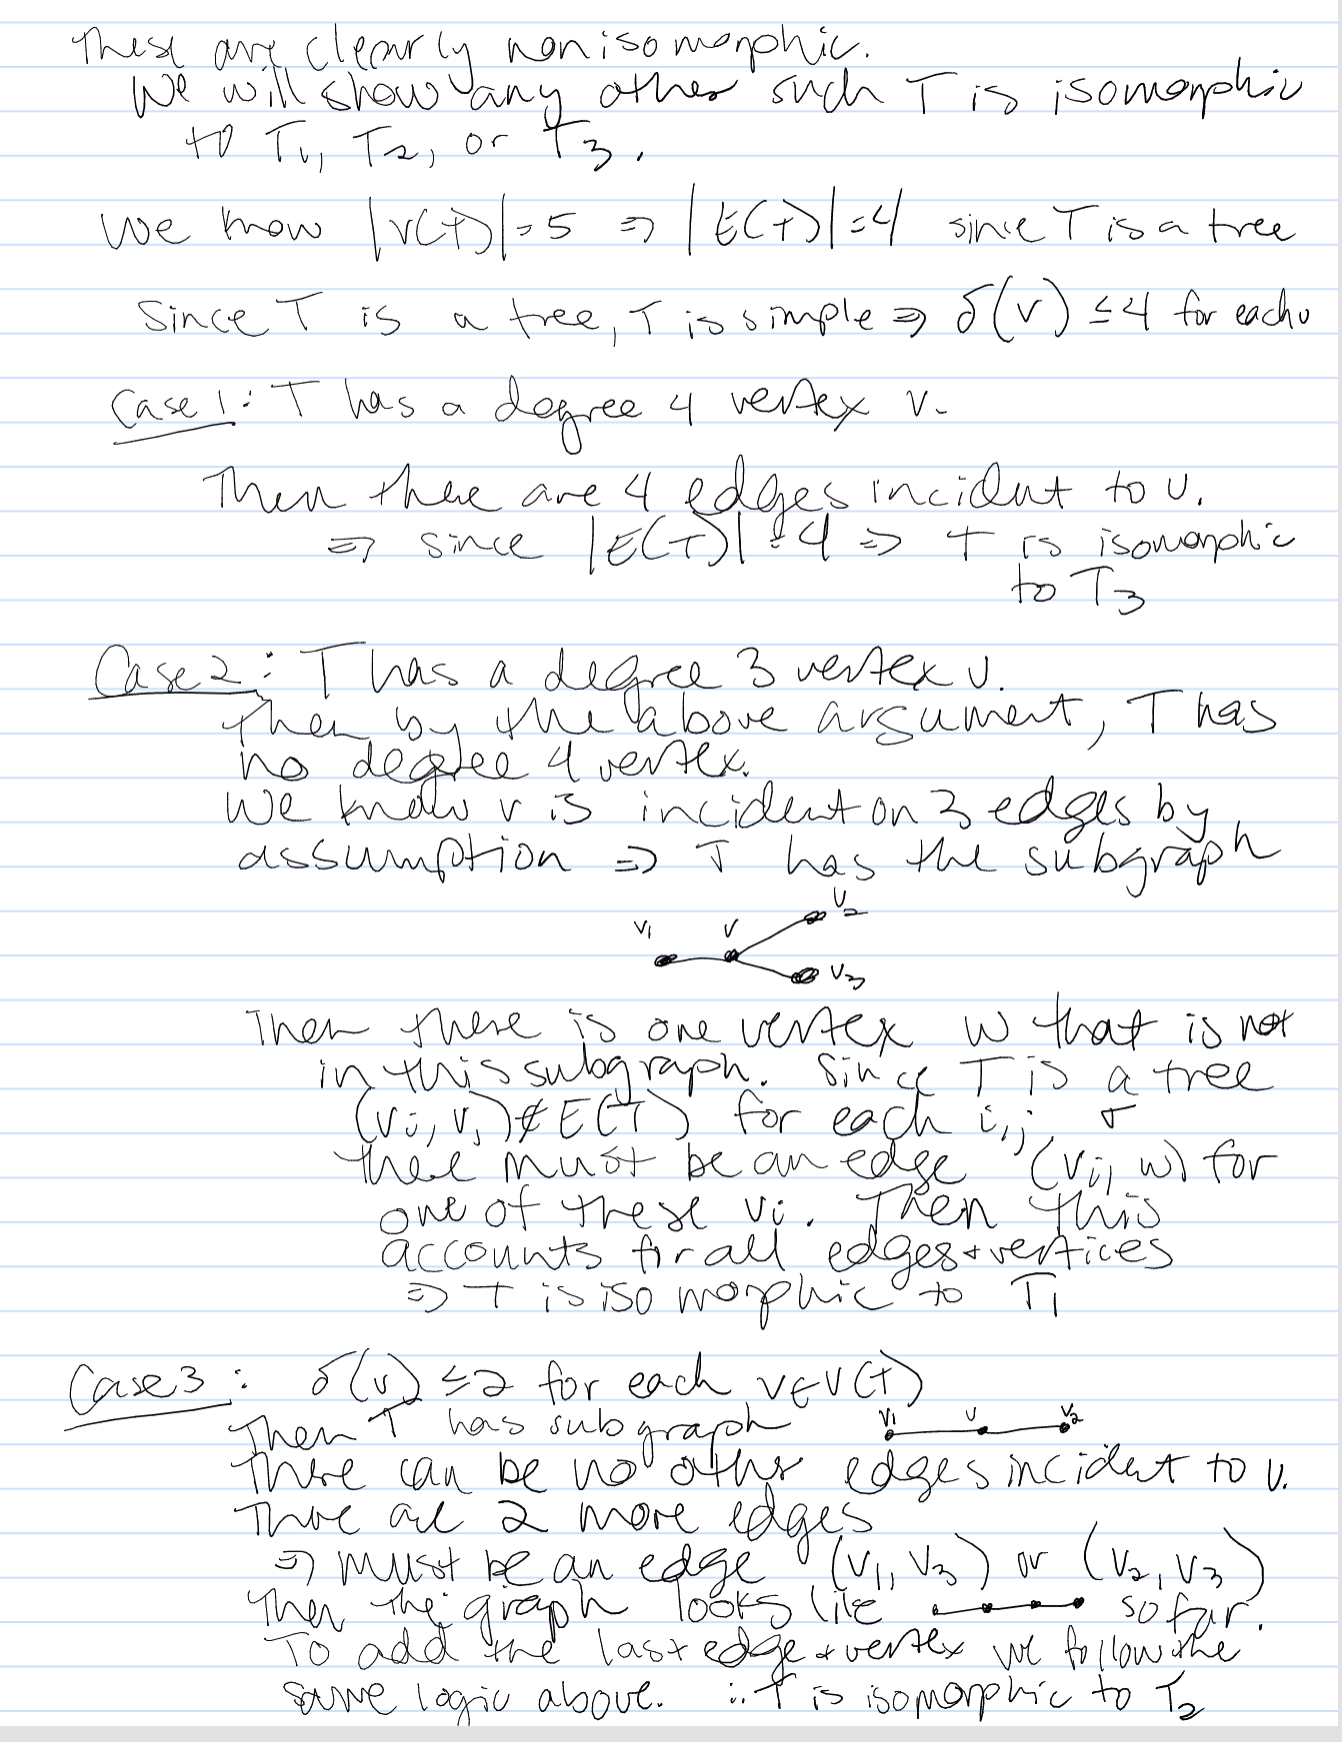 These are clearly nonisomorphic.
We will show any other such T is isomorphic
to T₁, T₂, or T₃.
We know |V(T)|=5 ⇒ |E(T)|=4 since T is a tree
Since T is a tree, T is simple ⇒ δ(v) ≤4 for each v
Case 1: T has a degree 4 vertex v.
Then there are 4 edges incident to v.
⇒ since |E(T)|=4 ⇒ T is isomorphic
to T₃
Case 2: T has a degree 3 vertex v.
Then by the above argument, T has
no degree 4 vertex.
We know v is incident on 3 edges by
assumption ⇒ T has the subgraph
v₁ v v₂
v₃
Then there is one vertex w that is not
in this subgraph. Since T is a tree
(vᵢ, vⱼ)∉E(T) for each i,j &
there must be an edge (vᵢ, w) for
one of these vᵢ. Then this
accounts for all edges + vertices
⇒ T is isomorphic to T₁
Case 3: δ(v) ≤2 for each v∈V(T)
Then T has subgraph v₁ v v₂
There can be no other edges incident to v.
There are 2 more edges
⇒ must be an edge (v₁, v₃) or (v₂, v₃)
Then the graph looks like so far.
To add the last edge + vertex we follow the
same logic above. ∴ T is isomorphic to T₂